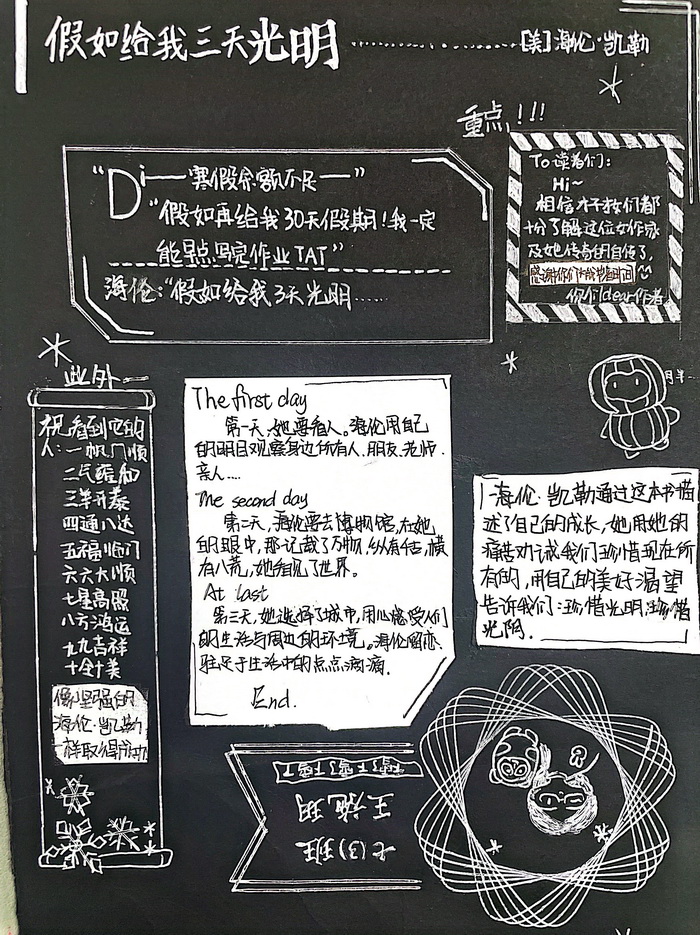 假如给我三天光明 ………… [美]海伦·凯勒
重点!!!
“Di——寒假余额不足——”
“假如再给我30天假期!我一定
能早点写完作业TAT”
海伦:“假如给我3天光明……
To读者们:
Hi~
相信才子才女们都
十分了解这位女作家
及她传奇的自传了,
你们dear作者
此外——
祝看到它的
人:一帆风顺
二气雍和
三羊开泰
四通八达
五福临门
六六大顺
七星高照
八方鸿运
九九吉祥
十全十美
像坚强的
海伦·凯勒
一样取得成功
The first day
第一天,她要看人。海伦用自己
的明目观察身边所有人,朋友.老师.
亲人....
The second day
第二天,海伦要去博物馆,在她
的眼中,那记载了万物,纵有千古,横
有八荒,她看见了世界。
At last
第三天,她选择了城市,用心感受人们
的生活与周边的环境。海伦留恋、
驻足于生活中的点点滴滴.
End.
月半
海伦·凯勒通过这本书描
述了自己的成长,她用她的
痛苦劝诫我们珍惜现在所
有的,用自己的美好渴望
告诉我们:珍惜光明,珍惜
光阴.
七(3)班